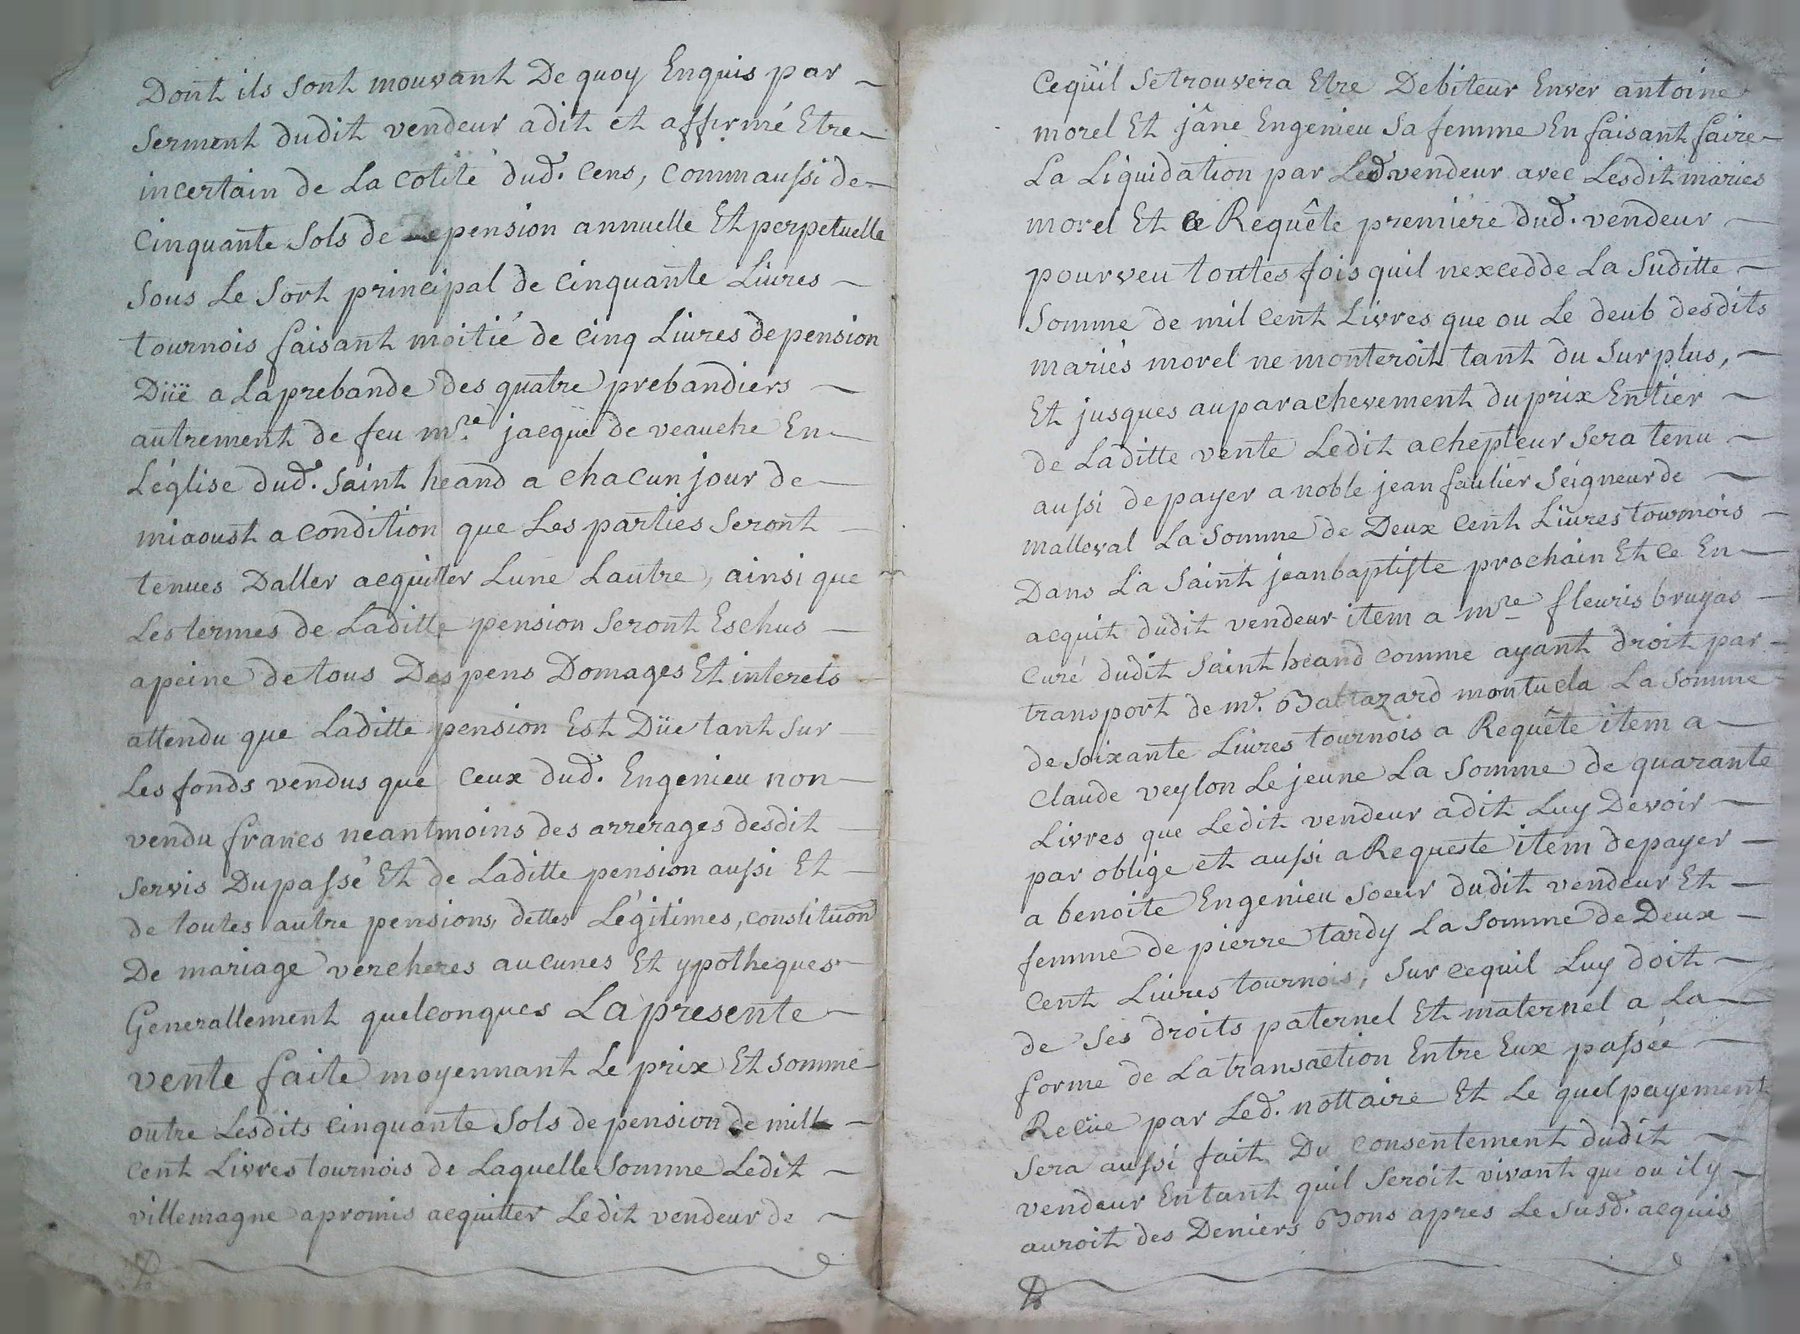 Dont ils sont mouvant De quoy Enquis par
serment dudit vendeur adit et affirmé Etre
incertain de La cotité dud. cens, commaussi de
Cinquante sols de pension annuelle Et perpetuelle
sous Le sort principal de cinquante Livres
tournois faisant moitié de cinq Livres de pension
Düe a La prebande des quatre prebandiers
autrement de feu mre. jacque de veauche En
L'église dud. Saint heand a chacun jour de
miaoust a condition que Les parties seront
tenues Daller acquitter Lune Lautre, ainsi que
Les termes de Laditte pension seront Eschus
apeine de tous Despens Domages Et interets
attendu que Laditte pension Est Düe tant sur
Les fonds vendus que ceux dud. Engenieu non
vendu francs neantmoins des arrérages desdit
servis Du passé Et de Laditte pension aussi Et
de toutes autre pensions, dettes Légitimes, constituon
De mariage vercheres aucunes Et ypotheques
Generallement quelconques La presente
vente faite moyennant Le prix Et somme
outre Lesdits cinquante sols de pension de mille
cent Livres tournois de Laquelle somme Ledit
villemagne apromis acquitter Ledit vendeur de
Cequil se trouvera Etre Debiteur Enver antoine
morel Et jâne Engenieu sa femme En faisant faire
La Liquidation par Led vendeur avec Lesdit mariés
morel Et ce Requête premiére dud. vendeur
pourveu toutes fois quil nexcedde La suditte
somme de mil cent Livres que ou Le deub desdits
mariés morel ne monteroit tant du surplus,
Et jusques auparachevement du prix Entier
de Laditte vente Ledit achepteur sera tenu
aussi de payer a noble jean faulier seigneur de
malleval La somme de Deux cent Livres tournois
Dans La Saint jeanbaptiste prochain Et ce En
acquit dudit vendeur item a mre fleuris bruyas
curé dudit Saint heand comme ayant droit par
transport de mr. Baltazard montuela La somme
de soixante Livres tournois a Requête item a
Claude veylon Le jeune La somme de quarante
Livres que Ledit vendeur adit Luy Devoir
par oblige et aussi a Requeste item de payer
a benoite Engenieu soeur dudit vendeur Et
femme de pierre tardy La somme de Deux
cent Livres tournois, sur cequil Luy doit
de ses droits paternel Et maternel a La
forme de La transaction Entre Eux passée
Recüe par Led. nottaire Et Le quel payement
sera aussi fait Du consentement dudit
vendeur Entant quil seroit vivant que ou il y
auroit des Deniers Bons apres Le susd. acquis